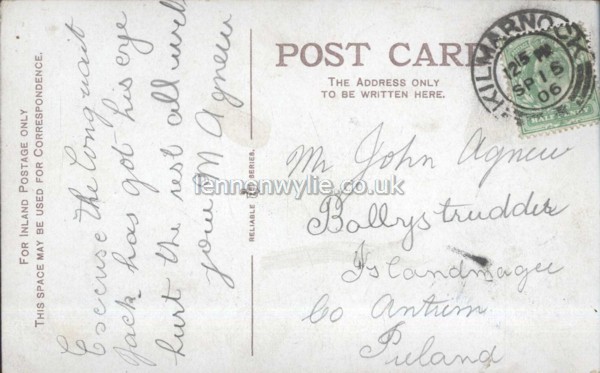 FOR INLAND POSTAGE ONLY
THIS SPACE MAY BE USED FOR CORRESPONDENCE.
Excuse the long wait
Jack has got his eye
hurt the rest all well
your M Agnew
RELIABLE SERIES.
POST CARD
THE ADDRESS ONLY
TO BE WRITTEN HERE.
KILMARNOCK
SP 15
06
HALF PENNY
Mr John Agnew
Ballystrudder
Islandmagee
Co Antrim
Ireland
lennonwylie.co.uk